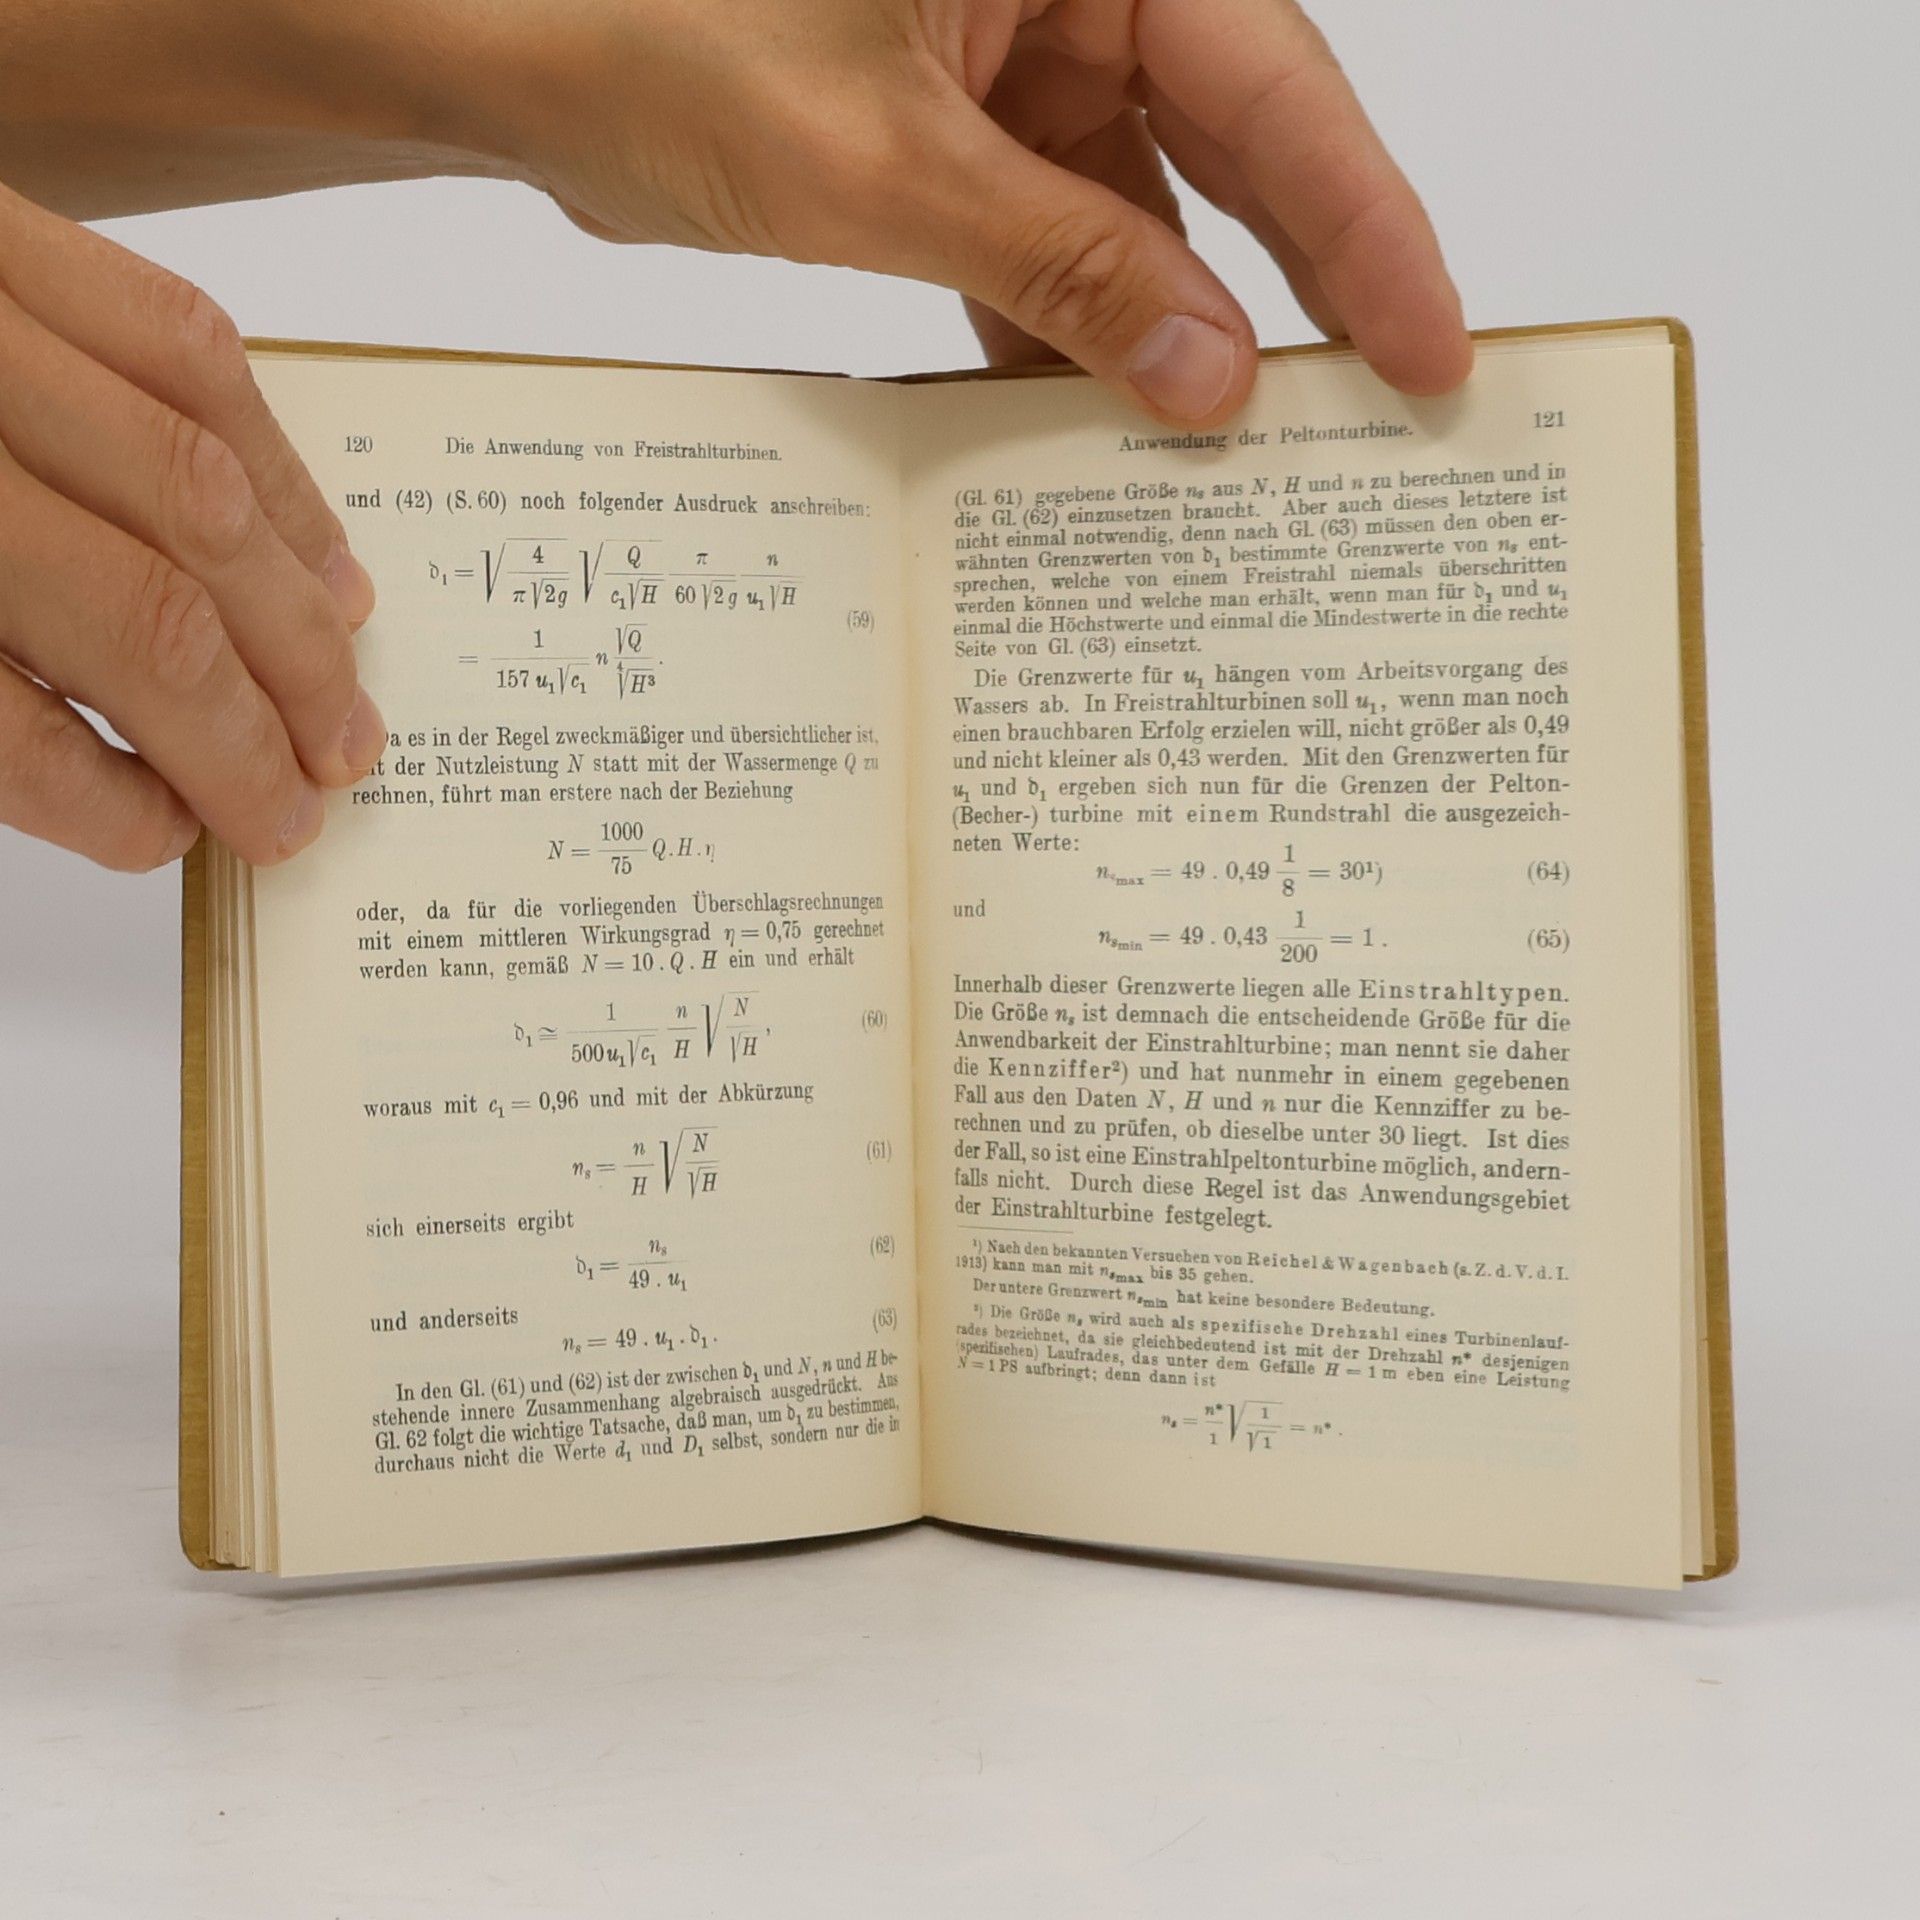 120 Die Anwendung von Freistrahlturbinen.
und (42) (S. 60) noch folgender Ausdruck anschreiben:
𝔡₁ = √(4 / (π√2g)) √(Q / (c₁√H)) π / (60√2g) n / (u₁√H)
= 1 / (157 u₁√c₁) n √Q / ∜H³. (59)
a es in der Regel zweckmäßiger und übersichtlicher ist,
t der Nutzleistung N statt mit der Wassermenge Q zu
rechnen, führt man erstere nach der Beziehung
N = 1000 / 75 Q.H.η
oder, da für die vorliegenden Überschlagsrechnungen
mit einem mittleren Wirkungsgrad η = 0,75 gerechnet
werden kann, gemäß N = 10.Q.H ein und erhält
𝔡₁ ≅ 1 / (500 u₁√c₁) n / H √(N / √H), (60)
woraus mit c₁ = 0,96 und mit der Abkürzung
nₛ = n / H √(N / √H) (61)
sich einerseits ergibt
𝔡₁ = nₛ / (49 . u₁) (62)
und anderseits
nₛ = 49 . u₁ . 𝔡₁. (63)
In den Gl. (61) und (62) ist der zwischen 𝔡₁ und N, n und H be-
stehende innere Zusammenhang algebraisch ausgedrückt. Aus
Gl. 62 folgt die wichtige Tatsache, daß man, um 𝔡₁ zu bestimmen,
durchaus nicht die Werte d₁ und D₁ selbst, sondern nur die in
Anwendung der Peltonturbine. 121
(Gl. 61) gegebene Größe nₛ aus N, H und n zu berechnen und in
die Gl. (62) einzusetzen braucht. Aber auch dieses letztere ist
nicht einmal notwendig, denn nach Gl. (63) müssen den oben er-
wähnten Grenzwerten von 𝔡₁ bestimmte Grenzwerte von nₛ ent-
sprechen, welche von einem Freistrahl niemals überschritten
werden können und welche man erhält, wenn man für 𝔡₁ und u₁
einmal die Höchstwerte und einmal die Mindestwerte in die rechte
Seite von Gl. (63) einsetzt.
Die Grenzwerte für u₁ hängen vom Arbeitsvorgang des
Wassers ab. In Freistrahlturbinen soll u₁, wenn man noch
einen brauchbaren Erfolg erzielen will, nicht größer als 0,49
und nicht kleiner als 0,43 werden. Mit den Grenzwerten für
u₁ und 𝔡₁ ergeben sich nun für die Grenzen der Pelton-
(Becher-) turbine mit einem Rundstrahl die ausgezeich-
neten Werte:
nₛmax = 49 . 0,49 1/8 = 30¹) (64)
und
nₛmin = 49 . 0,43 1/200 = 1 . (65)
Innerhalb dieser Grenzwerte liegen alle Einstrahltypen.
Die Größe nₛ ist demnach die entscheidende Größe für die
Anwendbarkeit der Einstrahlturbine; man nennt sie daher
die Kennziffer²) und hat nunmehr in einem gegebenen
Fall aus den Daten N, H und n nur die Kennziffer zu be-
rechnen und zu prüfen, ob dieselbe unter 30 liegt. Ist dies
der Fall, so ist eine Einstrahlpeltonturbine möglich, andern-
falls nicht. Durch diese Regel ist das Anwendungsgebiet
der Einstrahlturbine festgelegt.
¹) Nach den bekannten Versuchen von Reichel & Wagenbach (s. Z. d. V. d. I.
1913) kann man mit nₛmax bis 35 gehen.
Der untere Grenzwert nₛmin hat keine besondere Bedeutung.
²) Die Größe nₛ wird auch als spezifische Drehzahl eines Turbinenlauf-
rades bezeichnet, da sie gleichbedeutend ist mit der Drehzahl n* desjenigen
(spezifischen) Laufrades, das unter dem Gefälle H = 1 m eben eine Leistung
N = 1 PS aufbringt; denn dann ist
nₛ = n* / 1 √(1 / √1) = n* .